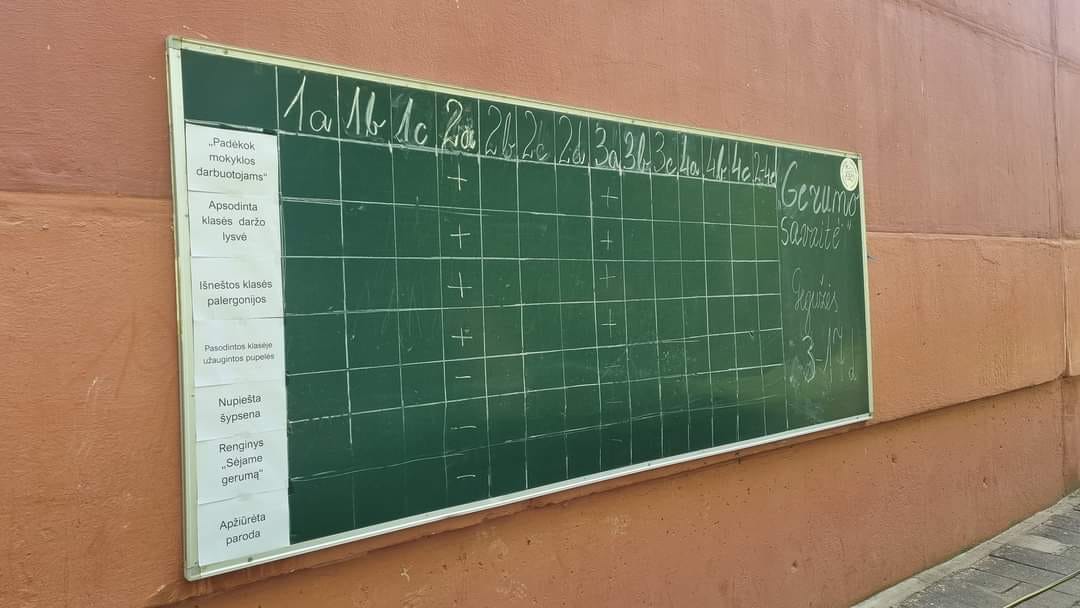 1a 1b 1c 2a 2b 2c 2d 3a 3b 3c 4a 4b 4c 2-4d
„Padėkok
mokyklos
darbuotojams“
+ +
Apsodinta
klasės daržo
lysvė
+ +
Išneštos klasės
palergonijos
+ +
Pasodintos klasėje
užaugintos pupelės
+ +
Nupiešta
šypsena
– –
Renginys
„Sėjame
gerumą“
– –
Apžiūrėta
paroda
–
Gerumo
savaitė"
Gegužės
d